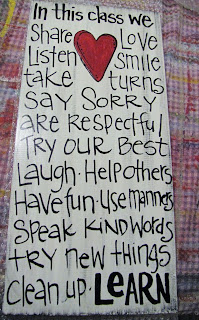 In this class we
Share Love
Listen Smile
take turns
say Sorry
are respectful
Try our Best
Laugh · Help others
Have fun · use manners
Speak Kind words
try new things
Clean up · LEARN